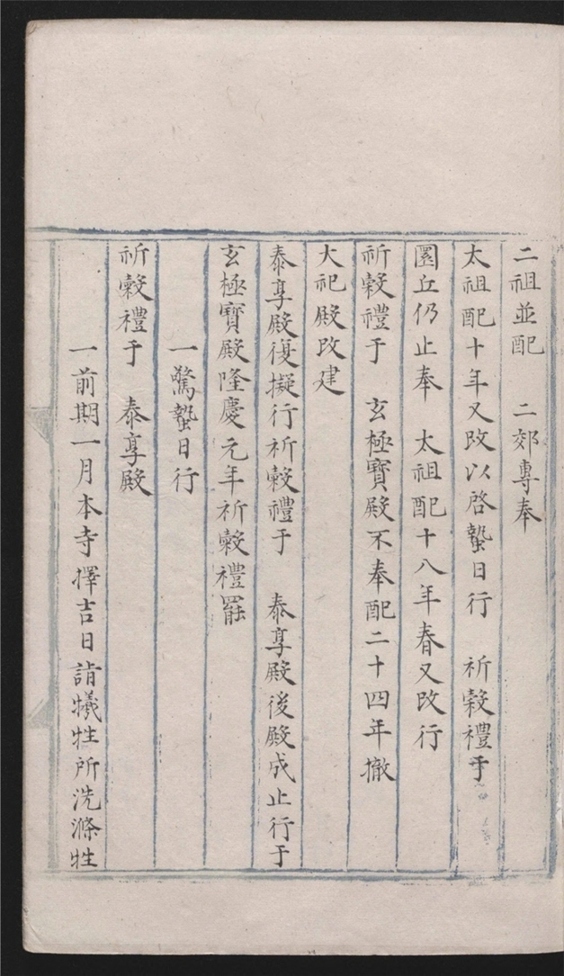 二祖並配　二郊專奉
太祖配十年又改以啓蟄日行　祈穀禮于
圜丘仍止奉　太祖配十八年春又改行
祈穀禮于　玄極寶殿不奉配二十四年撤
大祀殿改建
泰享殿復擬行祈穀禮于　泰享殿後殿成止行于
玄極寶殿隆慶元年祈穀禮罷
一驚蟄日行
祈穀禮于　泰享殿
一前期一月本寺擇吉日詣犧牲所洗滌牲